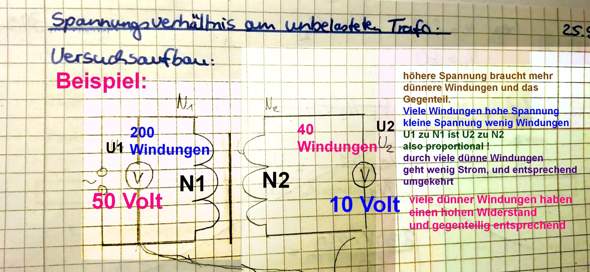 Spannungsverhältnis am unbelasteten Trafo.
25.
Versuchsaufbau:
Beispiel:
höhere Spannung braucht mehr
dünnere Windungen und das
Gegenteil.
Viele Windungen hohe Spannung
kleine Spannung wenig Windungen
U1 zu N1 ist U2 zu N2
also proportional !
durch viele dünne Windungen
geht wenig Strom, und entsprechend
umgekehrt
viele dünner Windungen haben
einen hohen Widerstand
und gegenteilig entsprechend
N1
N2
200
Windungen
U1
V
N1
50 Volt
40
Windungen
N2
U2
U2
V
10 Volt
~